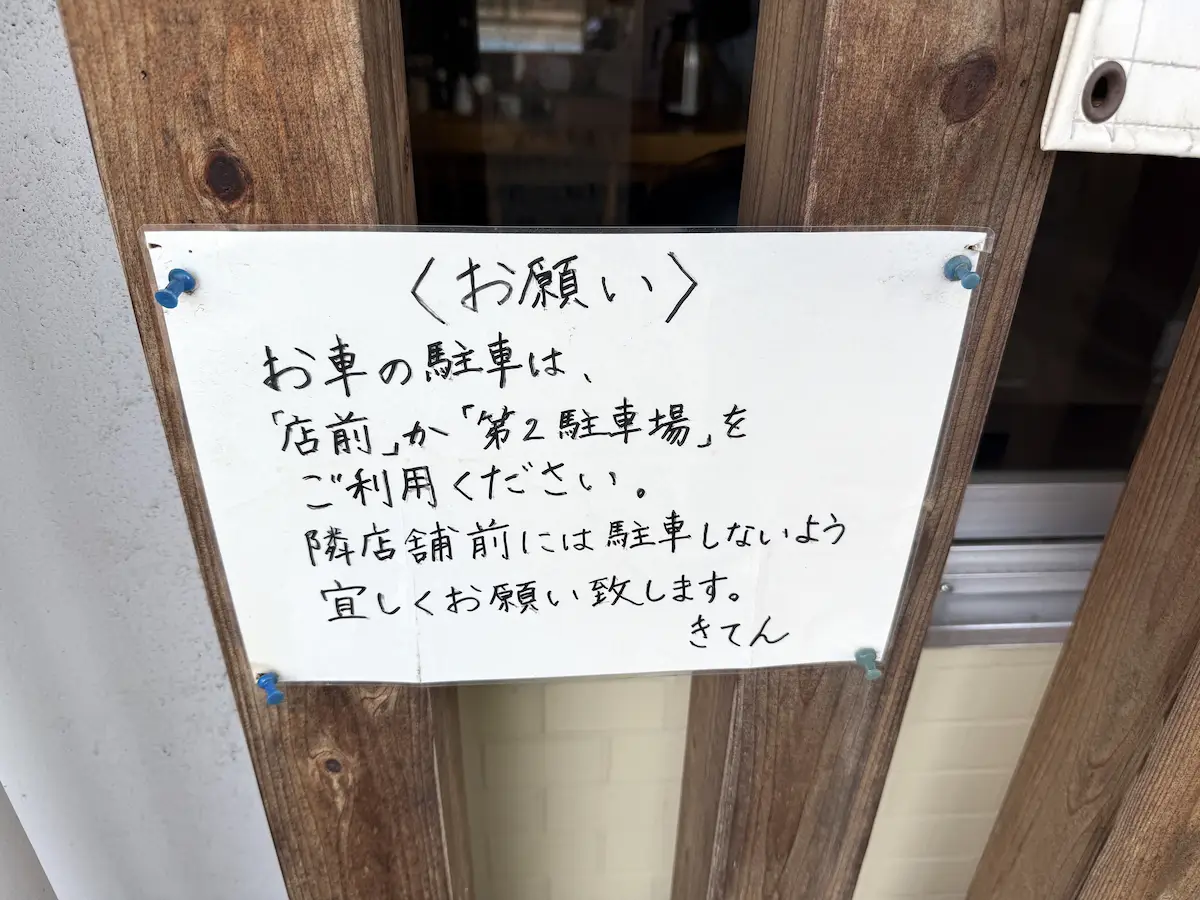 〈お願い〉
お車の駐車は、
「店前」か「第2駐車場」を
ご利用ください。
隣店舗前には駐車しないよう
宜しくお願い致します。
きてん